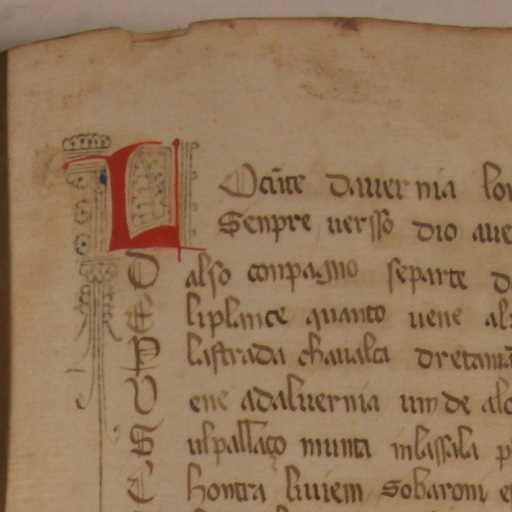 L Ocūte dauernia lo
Senpre uersso dio aue
D also conpagno separte d
E liplance quanto uene al
P lastrada chaualca dretam
V ene adaluernia um de alo
S ulpallaço munta inlassala p
C hontra liuiem sobaroni e